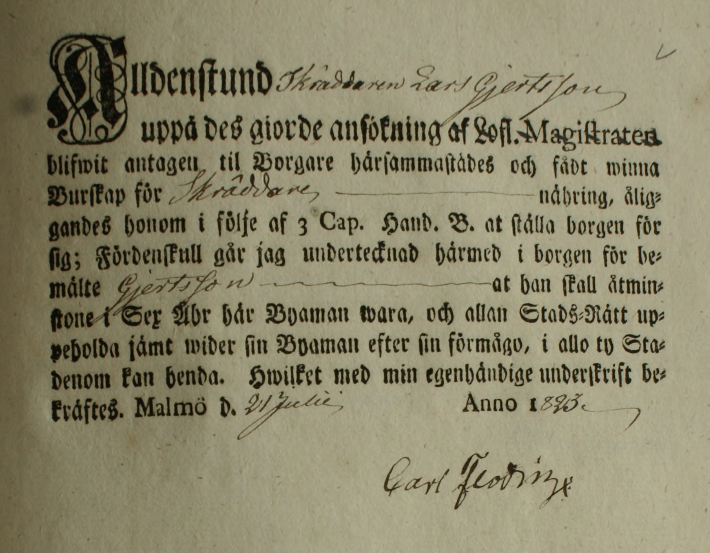 Alldenstund Skräddaren Lars Gjertsson
uppå des giorde ansökning af Lofl. Magistraten
blifwit antagen til Borgare härsammastädes och fådt winna
Burskap för Skräddare nähring, ålig-
gandes honom i följe af 3 Cap. Hand. B. at ställa borgen för
sig; Fördenskull går jag undertecknad härmed i borgen för be-
mälte Gjertsson at han skall åtmin-
stone i Sex Åhr här Byaman wara, och allan Stads-Rätt up-
peholda jämt wider sin Byaman efter sin förmågo, i allo ty Sta-
denom kan henda. Hwilket med min egenhändige underskrift be-
kräftes. Malmö d. 21 Julii Anno 1823.
Carl Flodin